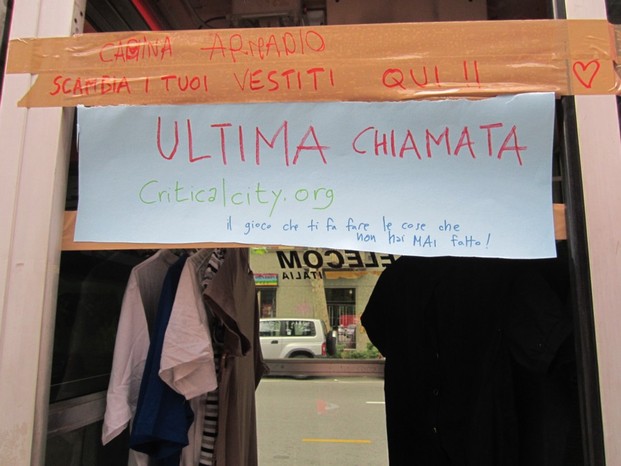 CABINA ARMADIO
SCAMBIA I TUOI VESTITI QUI !!
ULTIMA CHIAMATA
Criticalcity.org
il gioco che ti fa fare le cose che
non hai MAI fatto!
ELECOM
ITALIA